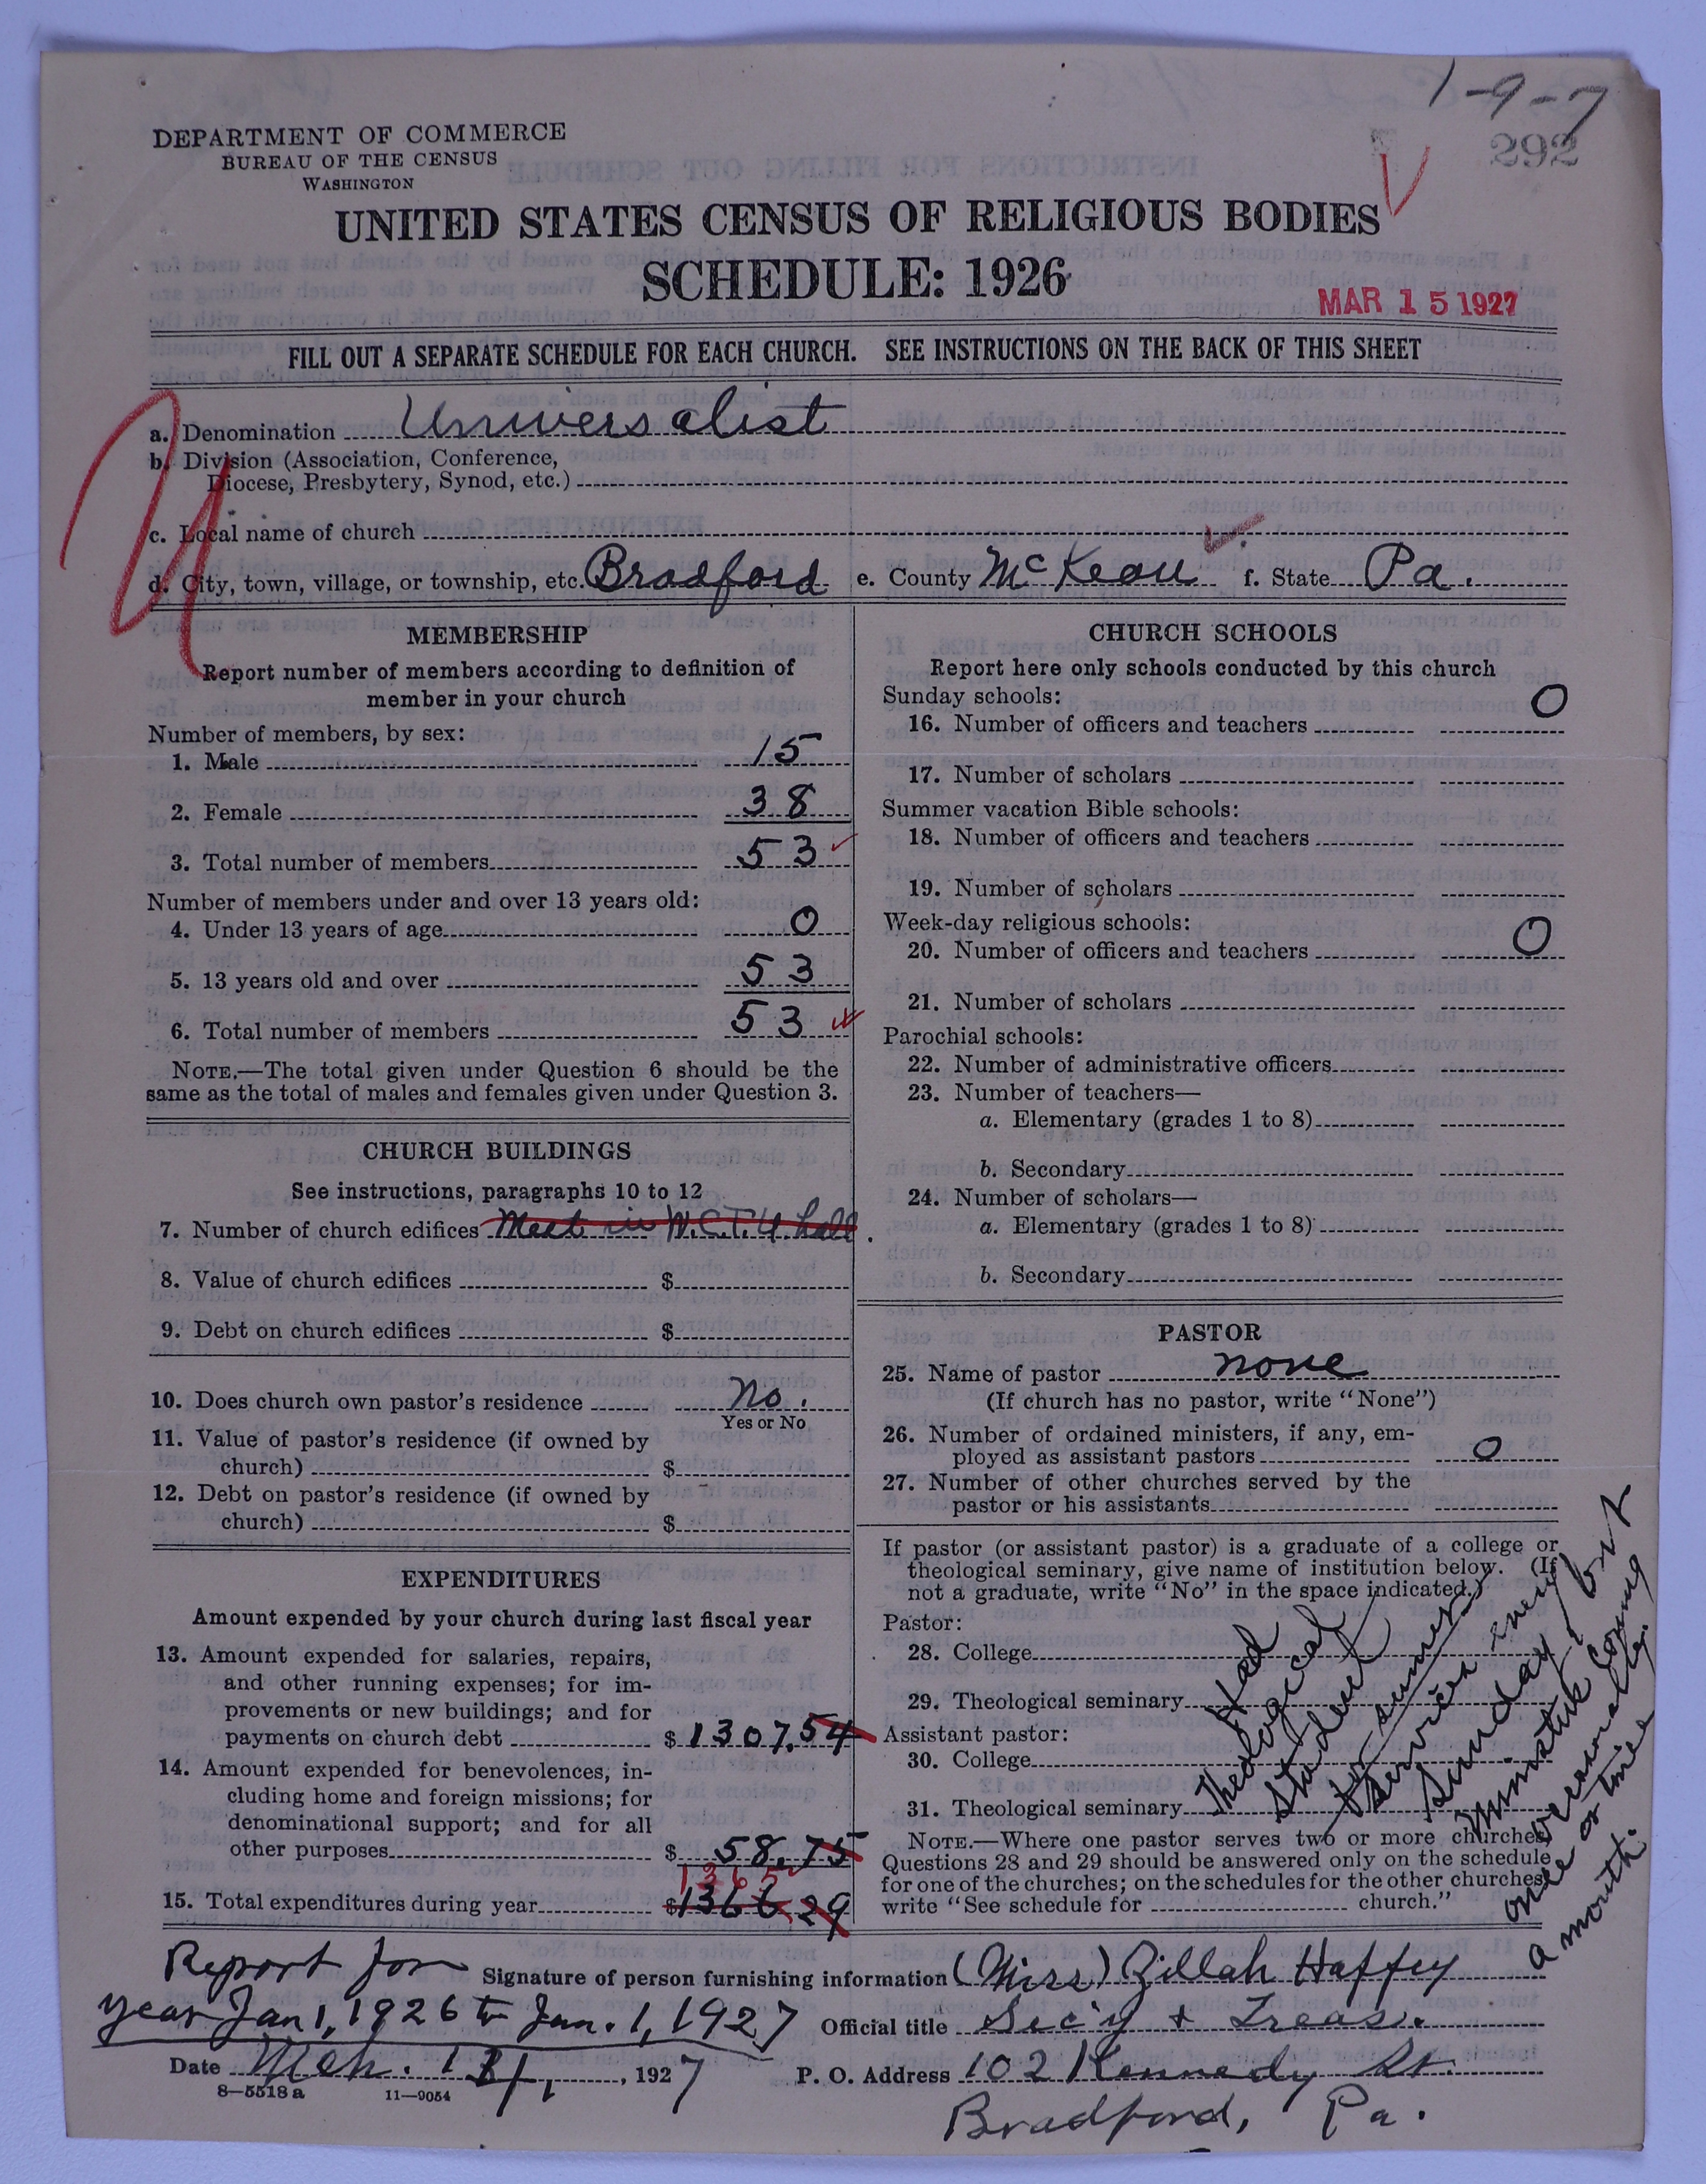 1-9-7
292
DEPARTMENT OF COMMERCE
BUREAU OF THE CENSUS
WASHINGTON
UNITED STATES CENSUS OF RELIGIOUS BODIES
SCHEDULE: 1926
MAR 15 1927
FILL OUT A SEPARATE SCHEDULE FOR EACH CHURCH. SEE INSTRUCTIONS ON THE BACK OF THIS SHEET
U
a. Denomination Universalist
b. Division (Association, Conference,
Diocese, Presbytery, Synod, etc.)
c. Local name of church
d. City, town, village, or township, etc. Bradford e. County McKean f. State Pa.
MEMBERSHIP
Report number of members according to definition of
member in your church
Number of members, by sex:
1. Male 15
2. Female 38
3. Total number of members 53
Number of members under and over 13 years old:
4. Under 13 years of age 0
5. 13 years old and over 53
6. Total number of members 53
NOTE.—The total given under Question 6 should be the
same as the total of males and females given under Question 3.
CHURCH BUILDINGS
See instructions, paragraphs 10 to 12
7. Number of church edifices Meet in W.C.T.U. hall.
8. Value of church edifices $
9. Debt on church edifices $
10. Does church own pastor's residence No.
Yes or No
11. Value of pastor's residence (if owned by
church) $
12. Debt on pastor's residence (if owned by
church) $
EXPENDITURES
Amount expended by your church during last fiscal year
13. Amount expended for salaries, repairs,
and other running expenses; for im-
provements or new buildings; and for
payments on church debt $ 1307.54
14. Amount expended for benevolences, in-
cluding home and foreign missions; for
denominational support; and for all
other purposes $ 58.75
1365
15. Total expenditures during year $1366 29
CHURCH SCHOOLS
Report here only schools conducted by this church
Sunday schools:
16. Number of officers and teachers 0
17. Number of scholars
Summer vacation Bible schools:
18. Number of officers and teachers
19. Number of scholars
Week-day religious schools:
20. Number of officers and teachers 0
21. Number of scholars
Parochial schools:
22. Number of administrative officers
23. Number of teachers—
a. Elementary (grades 1 to 8)
b. Secondary
24. Number of scholars—
a. Elementary (grades 1 to 8)
b. Secondary
PASTOR
25. Name of pastor none
(If church has no pastor, write "None")
26. Number of ordained ministers, if any, em-
ployed as assistant pastors 0
27. Number of other churches served by the
pastor or his assistants
If pastor (or assistant pastor) is a graduate of a college or
theological seminary, give name of institution below. (If
not a graduate, write "No" in the space indicated.)
Pastor:
28. College
29. Theological seminary
Assistant pastor:
30. College
31. Theological seminary
NOTE.—Where one pastor serves two or more churches,
Questions 28 and 29 should be answered only on the schedule
for one of the churches; on the schedules for the other churches
write "See schedule for church."
Had
Theological
student
for summer
Services every
Sunday, but
Minister coming
occasionally.
once or twice
a month.
Report for
year Jan 1, 1926 to Jan. 1, 1927
Signature of person furnishing information (Miss) Zillah Haffey
Official title Sec'y & Treas.
Date Mch. 1927
P. O. Address 102 Kennedy St.
Bradford, Pa.
8—5518 a 11—9054